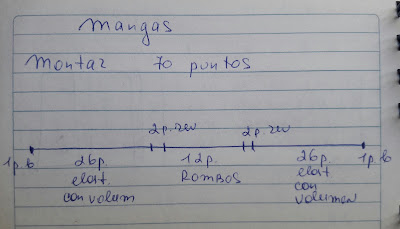 Mangas
Montar 70 puntos
2p. rev 2p. rev
1p. b 26p. 12p. 26p. 1p. b
elast. ROMBOS elast
con volum con
volumen